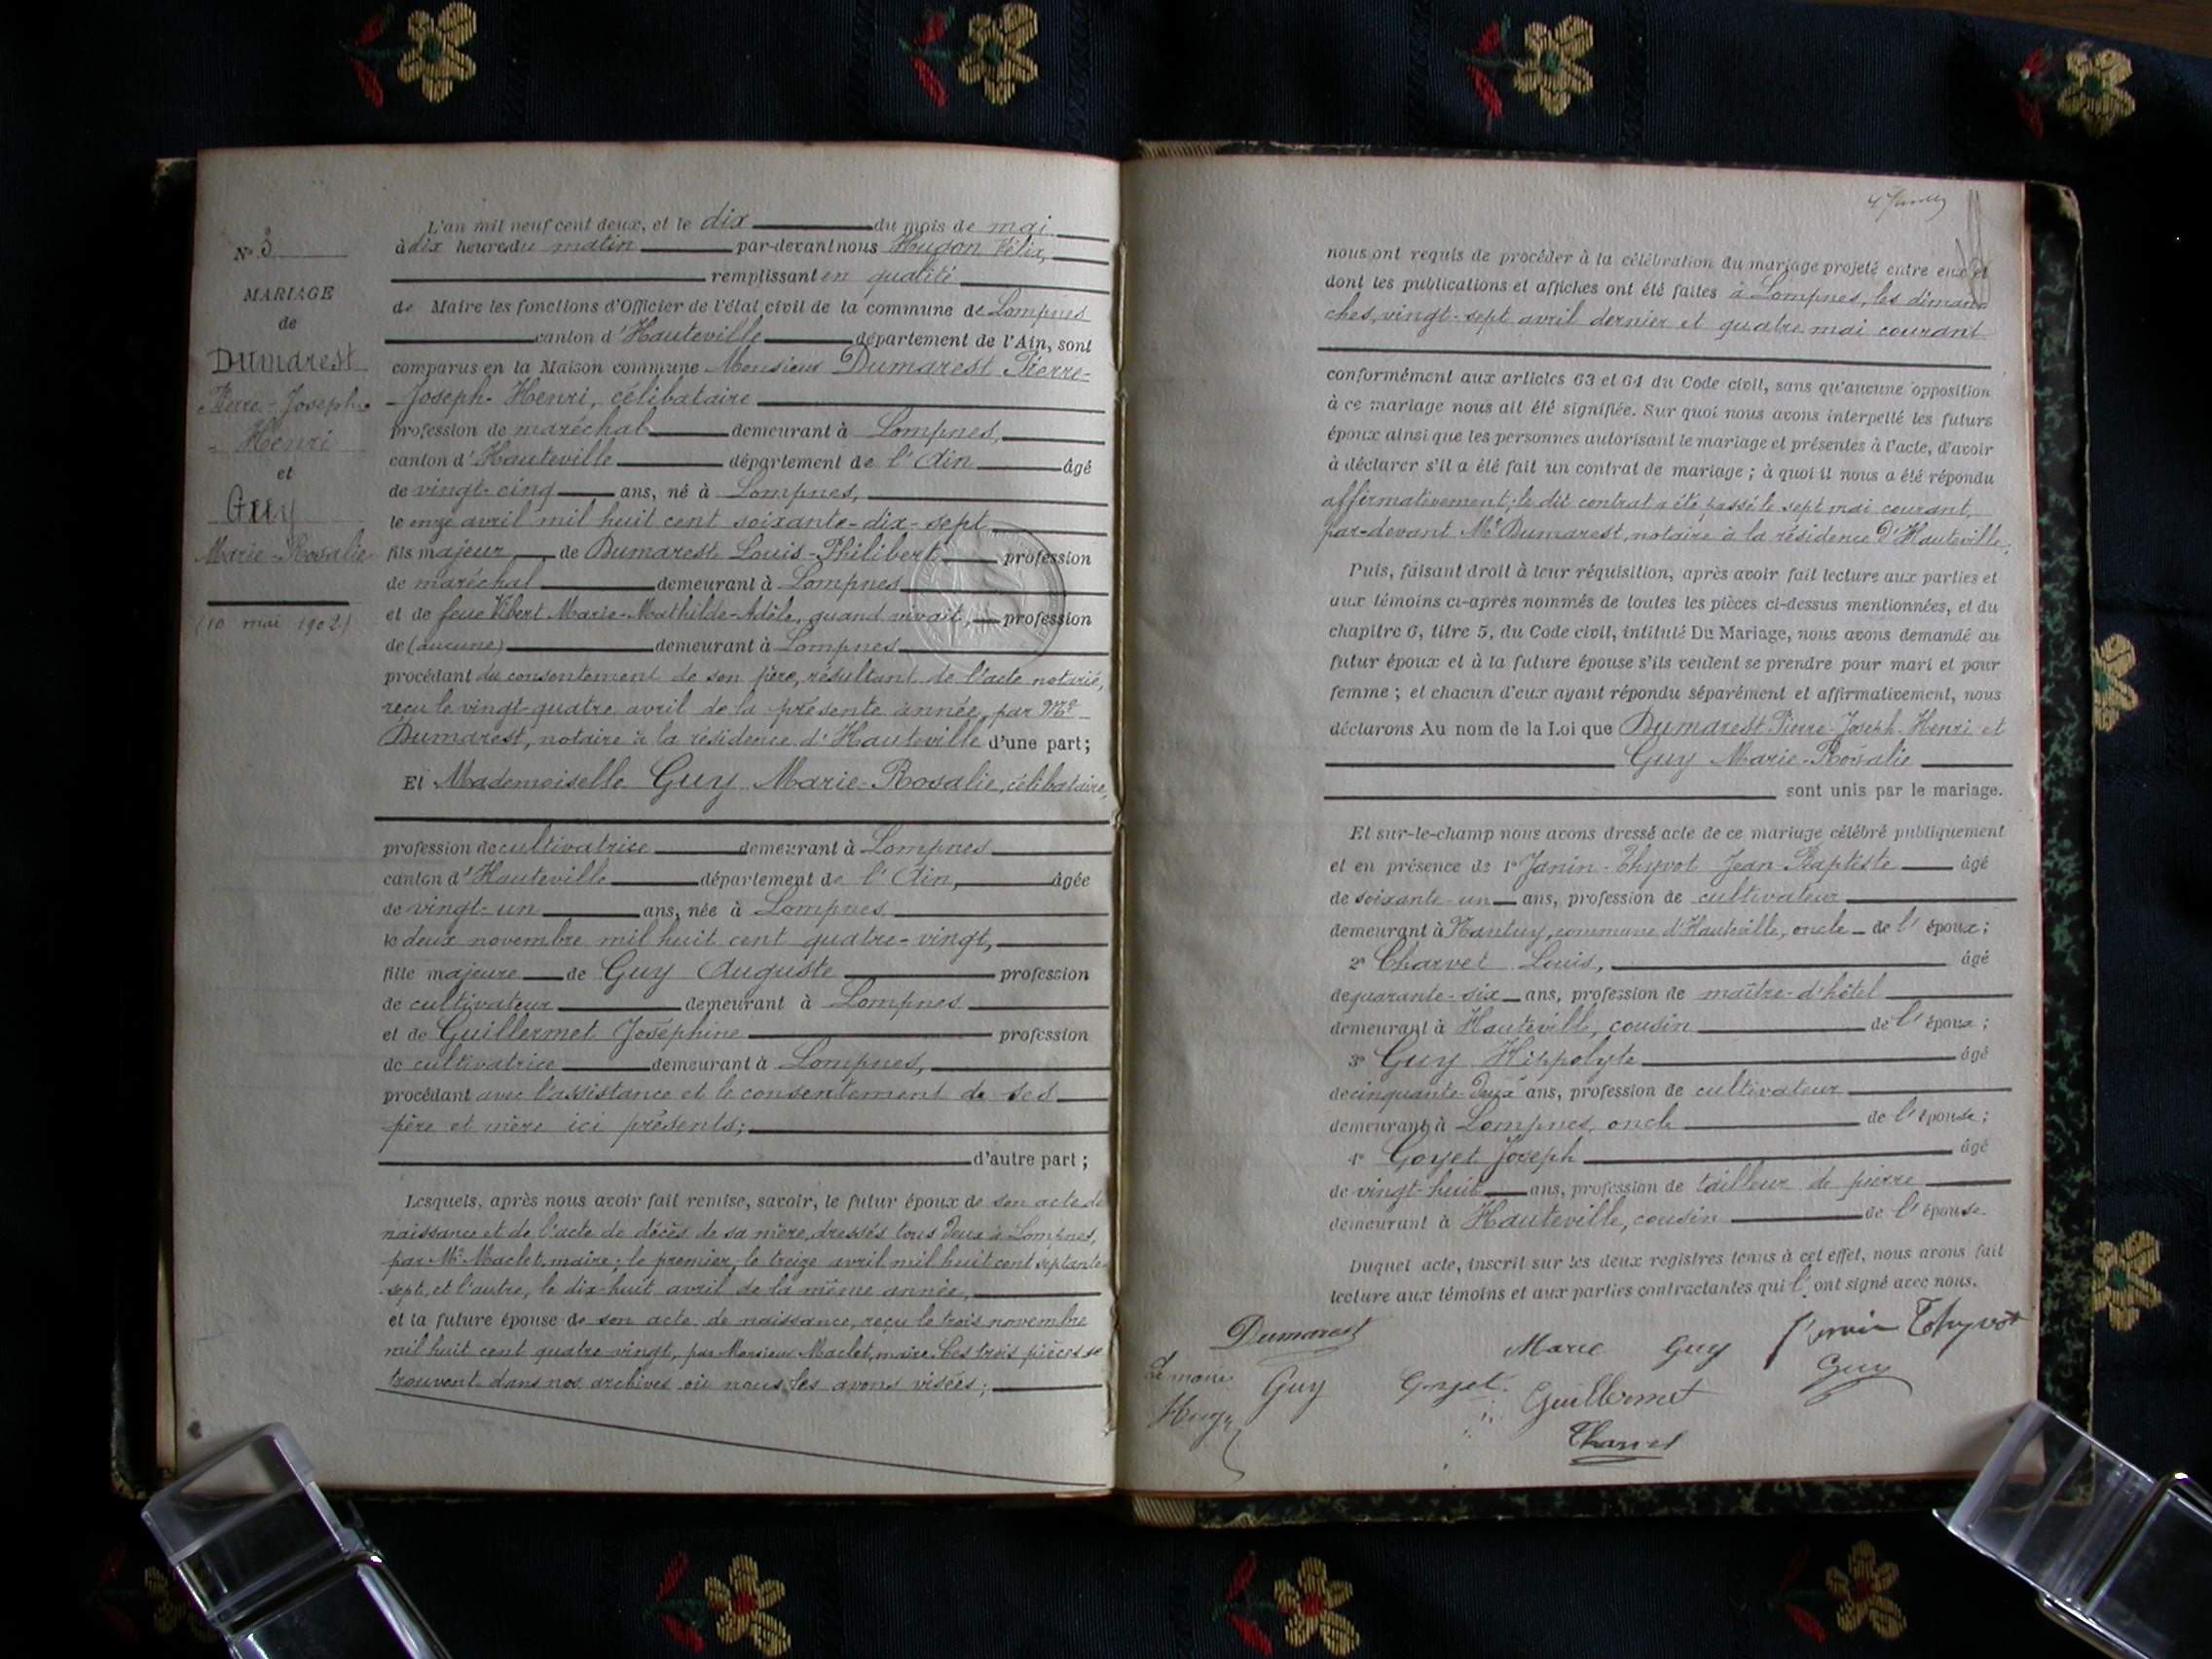 N° 3
MARIAGE
de
Dumarest
Pierre-Joseph-
-Henri
et
Guy
Marie-Rosalie
(10 mai 1902)
L'an mil neuf cent deux, et le dix du mois de mai
à dix heures du matin par-devant nous Hugon Félix,
remplissant en qualité
de Maire les fonctions d'Officier de l'état civil de la commune de Lompnes
canton d'Hauteville département de l'Ain, sont
comparus en la Maison commune Monsieur Dumarest Pierre-
-Joseph-Henri, célibataire
profession de maréchal demeurant à Lompnes,
canton d'Hauteville département de l'Ain âgé
de vingt-cinq ans, né à Lompnes,
le onze avril mil huit cent soixante-dix-sept
fils majeur de Dumarest Louis-Philibert profession
de maréchal demeurant à Lompnes
et de feue Vibert Marie-Mathilde-Adèle, quand vivait, profession
de (aucune) demeurant à Lompnes
procédant du consentement de son père, résultant de l'acte notarié,
reçu le vingt-quatre avril de la présente année, par Me
Dumarest, notaire à la résidence d'Hauteville d'une part;
Et Mademoiselle Guy Marie-Rosalie, célibataire,
profession de cultivatrice demeurant à Lompnes
canton d'Hauteville département de l'Ain, âgée
de vingt-un ans, née à Lompnes
le deux novembre mil huit cent quatre-vingt,
fille majeure de Guy Auguste profession
de cultivateur demeurant à Lompnes
et de Guillermet Joséphine profession
de cultivatrice demeurant à Lompnes,
procédant avec l'assistance et le consentement de ses
père et mère ici présents;
d'autre part;
Lesquels, après nous avoir fait remise, savoir, le futur époux de son acte de
naissance et de l'acte de décès de sa mère, dressés tous deux à Lompnes,
par Mr Maclet, maire; le premier, le treize avril mil huit cent septante-
-sept, et l'autre, le dix-huit avril de la même année,
et la future épouse de son acte de naissance, reçu le trois novembre
mil huit cent quatre-vingt, par Monsieur Maclet, maire. Ces trois pièces se
trouvent dans nos archives où nous les avons visées;
nous ont requis de procéder à la célébration du mariage projeté entre eux et
dont les publications et affiches ont été faites à Lompnes, les diman
ches, vingt-sept avril dernier et quatre mai courant
conformément aux articles 63 et 64 du Code civil, sans qu'aucune opposition
à ce mariage nous ait été signifiée. Sur quoi nous avons interpellé les futurs
époux ainsi que les personnes autorisant le mariage et présentes à l'acte, d'avoir
à déclarer s'il a été fait un contrat de mariage; à quoi il nous a été répondu
affirmativement; le dit contrat a été passé le sept mai courant,
par-devant Me Dumarest, notaire à la résidence d'Hauteville.
Puis, faisant droit à leur réquisition, après avoir fait lecture aux parties et
aux témoins ci-après nommés de toutes les pièces ci-dessus mentionnées, et du
chapitre 6, titre 5, du Code civil, intitulé Du Mariage, nous avons demandé au
futur époux et à la future épouse s'ils veulent se prendre pour mari et pour
femme; et chacun d'eux ayant répondu séparément et affirmativement, nous
déclarons Au nom de la Loi que Dumarest Pierre-Joseph-Henri et
Guy Marie-Rosalie
sont unis par le mariage.
Et sur-le-champ nous avons dressé acte de ce mariage célébré publiquement
et en présence de 1° Janin-Thyvot Jean-Baptiste âgé
de soixante-un ans, profession de cultivateur
demeurant à Nantuy, commune d'Hauteville, oncle de l'époux;
2° Charvet Louis, âgé
de quarante-six ans, profession de maître-d'hôtel
demeurant à Hauteville, cousin de l'époux;
3° Guy Hippolyte âgé
de cinquante-deux ans, profession de cultivateur
demeurant à Lompnes, oncle de l'épouse;
4° Goyet Joseph âgé
de vingt-huit ans, profession de tailleur de pierre
demeurant à Hauteville, cousin de l'épouse.
Duquel acte, inscrit sur les deux registres tenus à cet effet, nous avons fait
lecture aux témoins et aux parties contractantes qui l'ont signé avec nous.
Dumarest Marie Guy Janin Thyvot
Le maire Guy Goyet Guillermet Guy
Hugon
Charvet